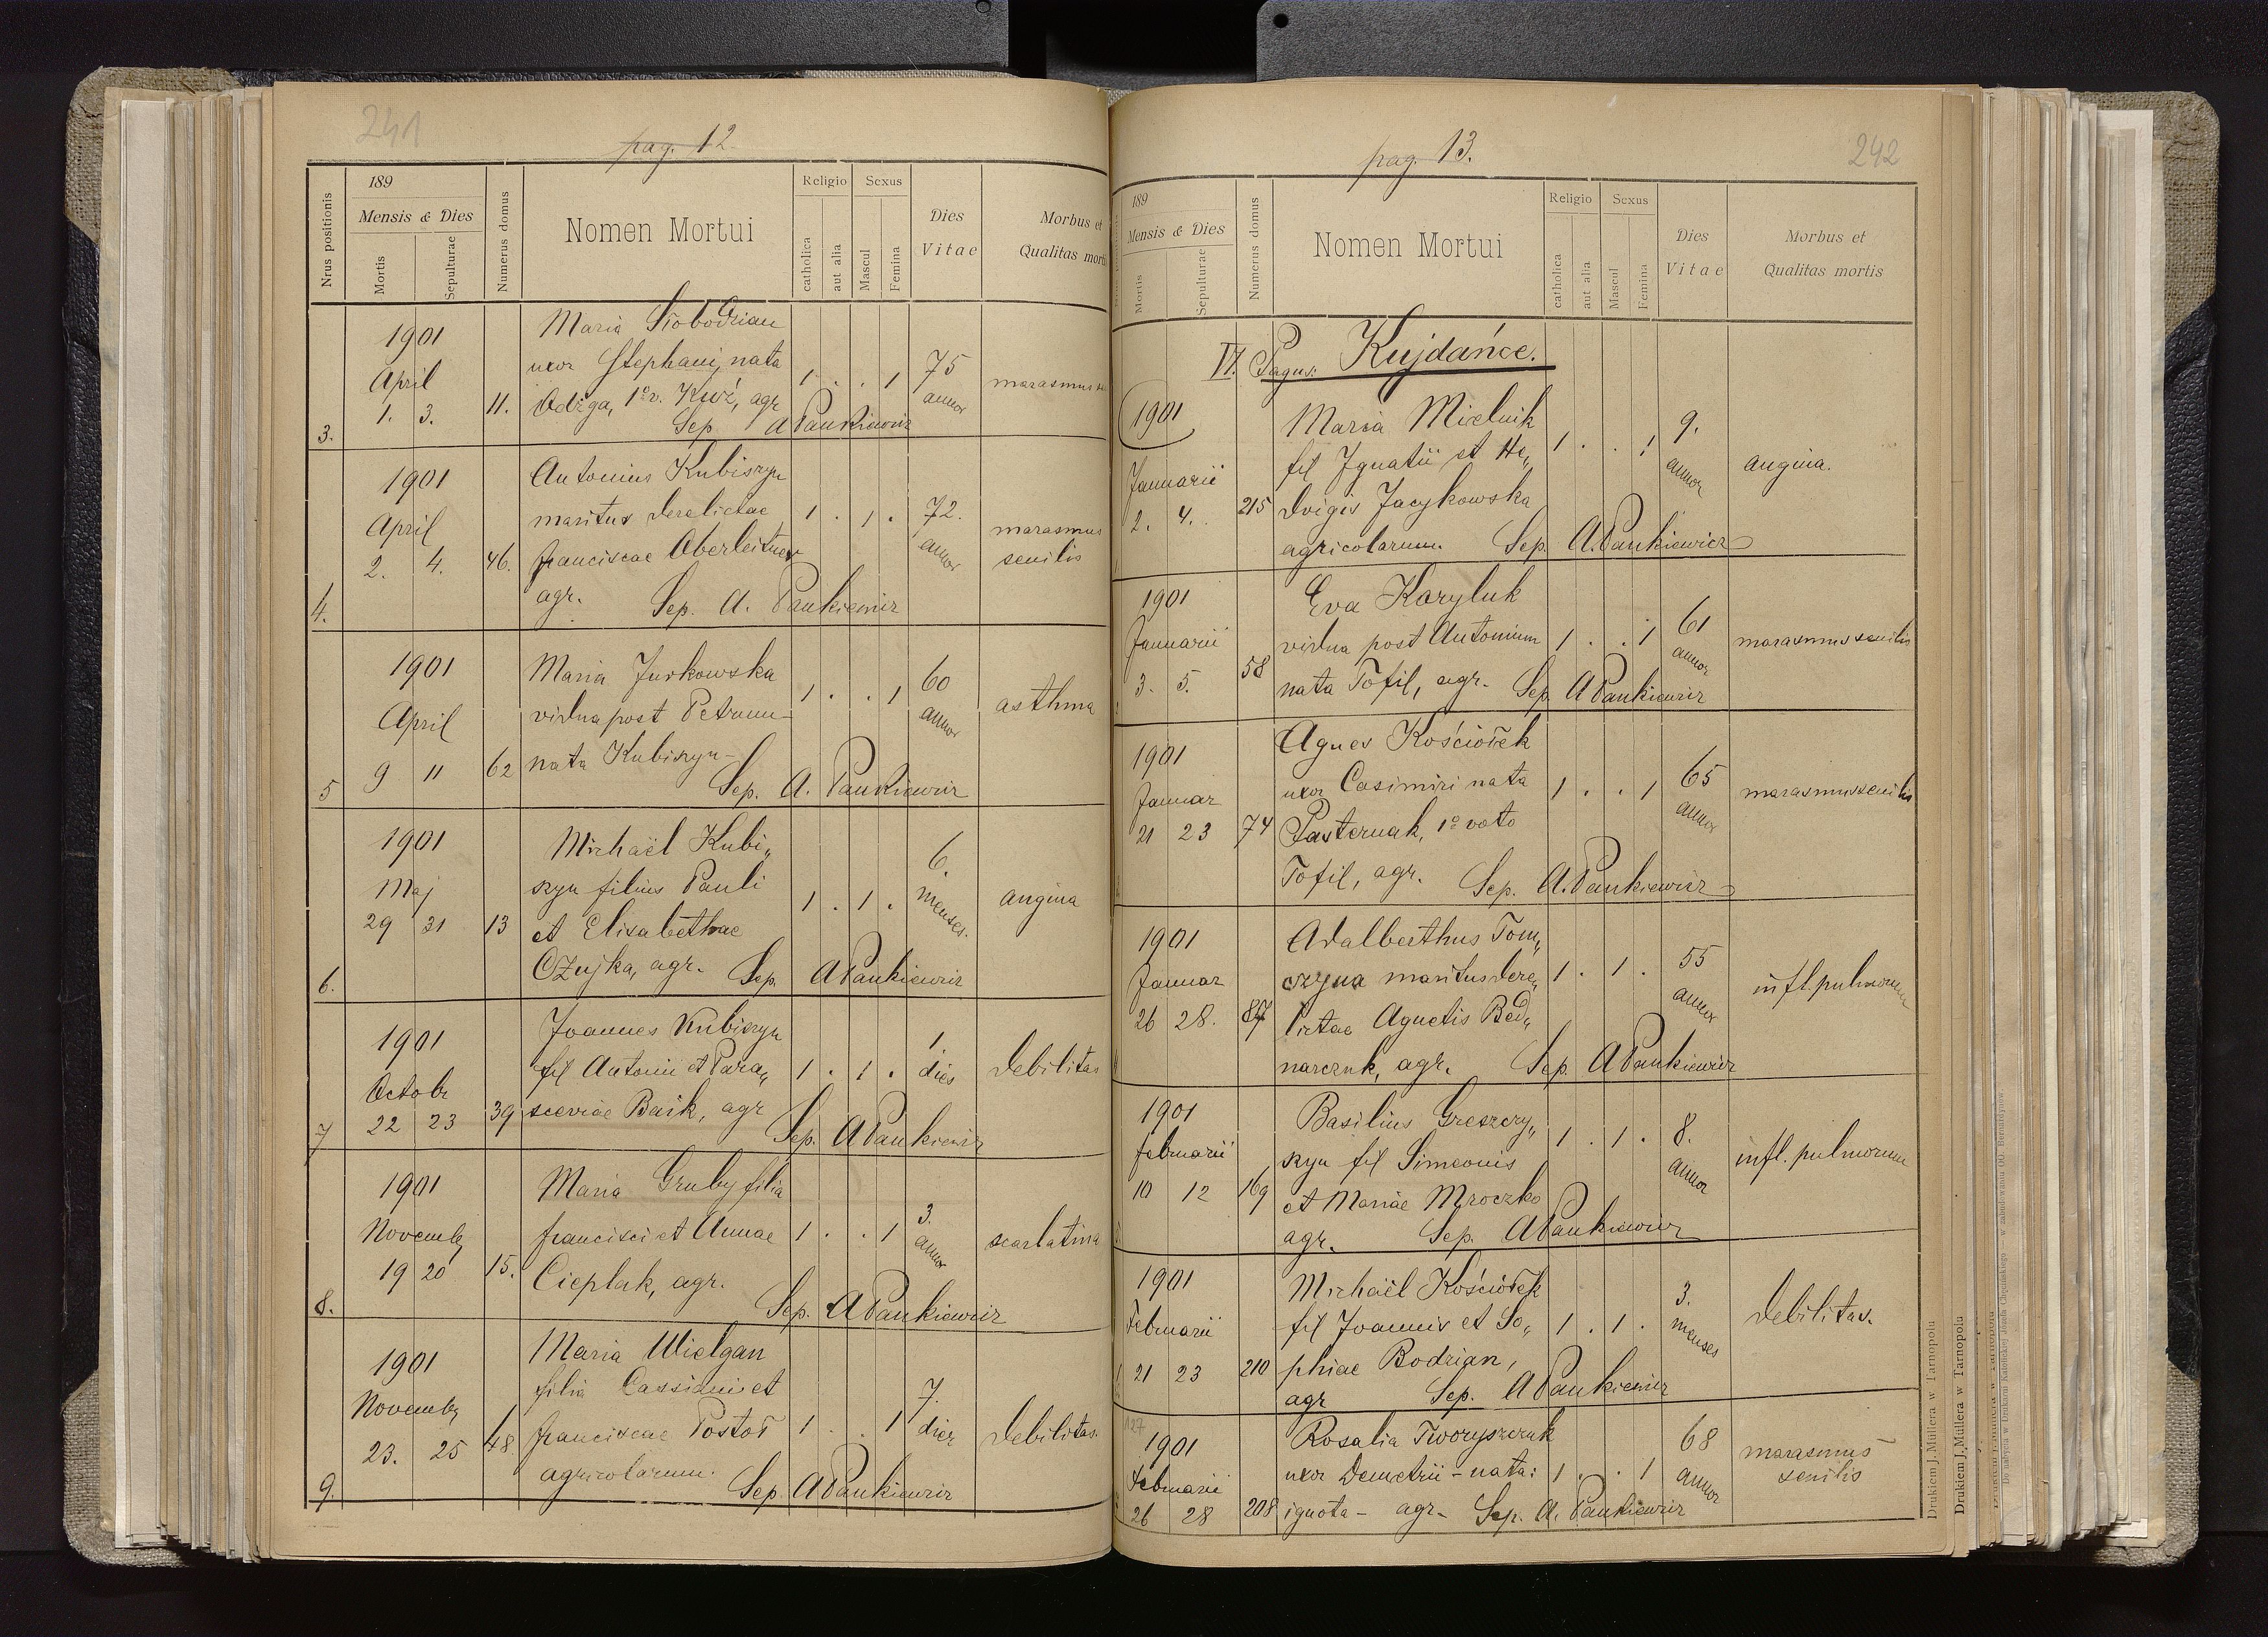 241
pag. 12
Nrus positionis
189
Mensis & Dies
Mortis
Sepulturae
Numerus domus
Nomen Mortui
Religio
catholica
aut alia
Sexus
Mascul
Femina
Dies
Vitae
Morbus et
Qualitas mortis
3.
1901
April
1. 3.
11.
Maria Słobodzian
uxor Stephani, nata
Odżga, 1º v. Kuź, agr
Sep A Pankiewicz
1 . . 1
75
annor
marasmus se
4.
1901
April
2. 4.
46.
Antonius Kubiszyn
maritus derelictae
Franciscae Oberleitner
agr. Sep. A. Pankiewicz
1 . 1 .
72.
annor
marasmus
senilis
5
1901
April
9 11
62
Maria Jurkowska
vidua post Petrum
nata Kubiszyn
Sep. A. Pankiewicz
1 . . 1
60
annor
asthma
6.
1901
Maj
29 31
13
Michaël Kubi„
szyn filius Pauli
et Elisabethae
Czujka, agr. Sep. A Pankiewicz
1 . 1 .
6.
menses.
angina
7
1901
Octobr
22 23
39
Joannes Kubiszyn
fil Antonii et Para„
sceviae Baik, agr
Sep. A Pankiewicz
1 . 1 .
1.
dies
debilitas
8.
1901
Novemb
19 20
15.
Maria Gruby filia
Francisci et Annae
Cieplak, agr.
Sep. A Pankiewicz
1 . . 1
3.
annor
scarlatina
9.
1901
Novemb
23. 25
48
Maria Wielgan
filia Cassiani et
Franciscae Postoł
agricolarum.
Sep A Pankiewicz
1 . . 1
7.
dier
debilitas.
242
pag. 13.
189
Mensis & Dies
Mortis
Sepulturae
Numerus domus
Nomen Mortui
Religio
catholica
aut alia
Sexus
Mascul
Femina
Dies
Vitae
Morbus et
Qualitas mortis
VI. Pagus: Kujdańce.
1901
Januarii
2. 4.
215
Maria Mielnik
fil Ignatii et He„
dvigis Jacykowska
agricolarum. Sep. A. Pankiewicz
1 . . 1
9.
annor
angina.
1901
Januarii
3. 5.
58
Eva Karyluk
vidua post Antonium
nata Tofil, agr. Sep. A Pankiewicz
1 . . 1
61
annor
marasmus senilis
1901
Januar
21 23
74
Agnes Kościółek
uxor Casimiri nata
Pasternak, 1º voto
Tofil, agr. Sep. A. Pankiewicz
1 . . 1
65
annor
marasmus senilis
1901
Januar
26 28.
87
Adalberthus Tom„
czyna maritus dere„
lictae Agnetis Bed„
narczuk, agr. Sep. A Pankiewicz
1 . 1 .
55
annor
infl. pulmorum
1901
Februarii
10 12
169
Basilius Greszczy„
szyn fil Simeonis
et Mariae Mroczko
agr. Sep. A Pankiewicz
1 . 1 .
8.
annor
infl. pulmorum
1901
Februarii
21 23
210
Michaël Kościółek
fil Joannis et So„
phiae Bodzian,
agr Sep. A Pankiewicz
1 . 1 .
3.
menses
debilitas.
127
1901
Februarii
26 28
208
Rosalia Tworyszczuk
uxor Demetrii - nata:
ignota - agr. Sep. A. Pankiewicz
1 . . 1
68
annor
marasmus
senilis
Drukiem J. Müllera w Tarnopolu
Drukiem J. Müllera w Tarnopolu